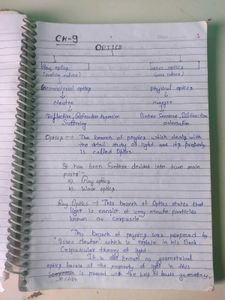 CH-9
1
OPTICS
Ray optics Wave optics
(wave nature)
Geometrical optics Physical optics
Newton Huygen
Reflection, Refraction, dispersion
Scattering
Optics → The branch of physics which deals with
the detail study of light and its property
is called Optics.
It has been further devided into two main
parts:
a) Ray optics
b) Wave optics
Ray Optics → This branch of Optics states that
light is consist of very minute particles
known as corpuscle.
This branch of physics was proposed to
"Issac Newton" which is explain in his Book
Corpuscular theory of light.
It is also known as geometrical
optics because all the property of light in this
is proved with the help of basic geometry.